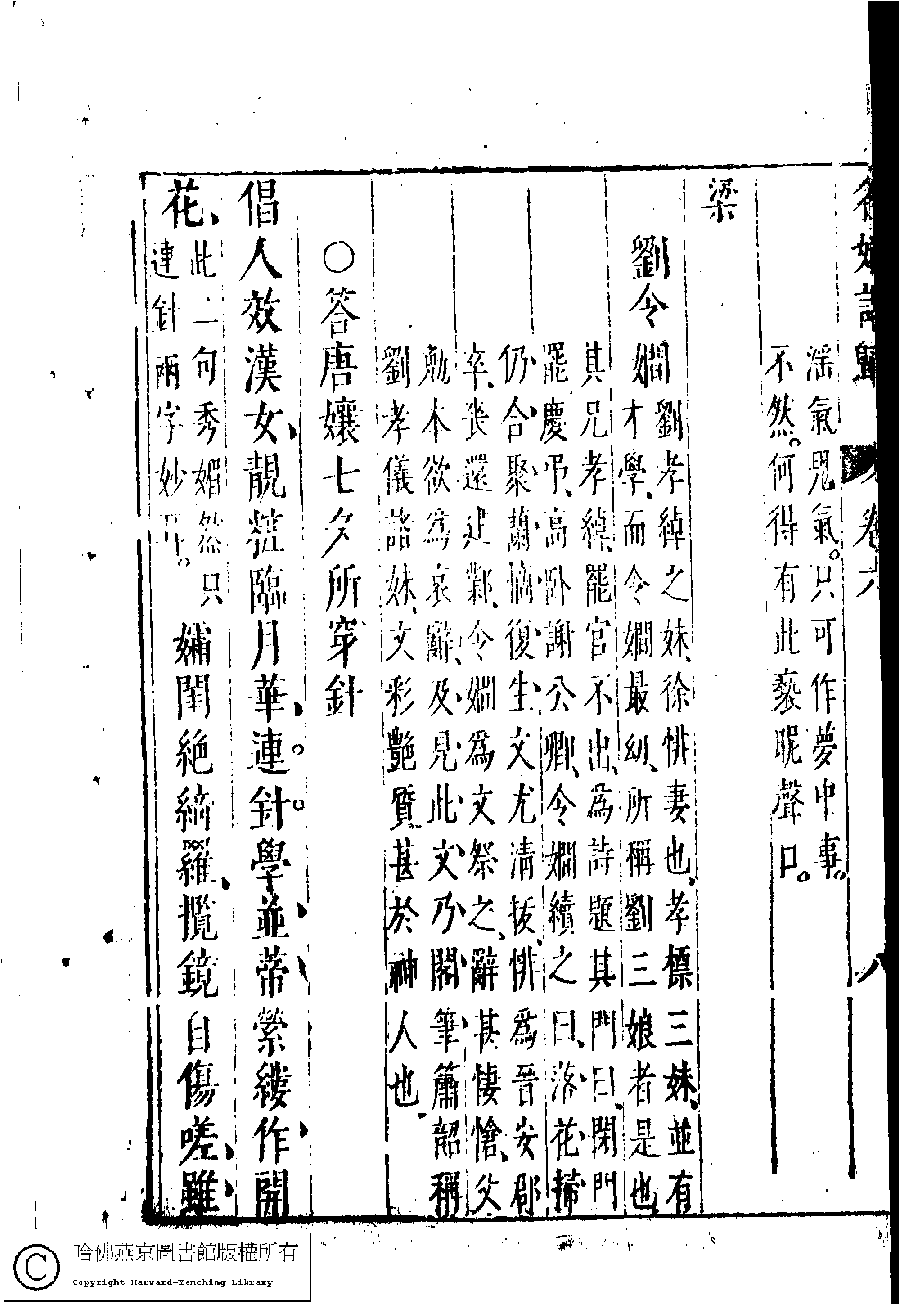 名媛詩歸 卷六 八
淫氣鬼氣。只可作夢中事。
不然。何得有此褻昵聲口。
梁
劉令嫺
劉孝綽之妹、徐悱妻也、孝標三妹、並有
才學、而令嫺最幼、所稱劉三娘者是也
其兄孝綽、罷官不出、為詩題其門曰、閉門
罷慶弔、高臥謝公卿、令嫺續之曰、落花掃
仍合聚、蘭摘復生、文尤清拔、悱為晉安郡
卒、喪還建鄴、令嫺為文祭之、辭甚悽愴、父
勉本欲為哀辭、及見此文、乃閣筆、簫韶稱
劉孝儀諸妹、文彩艷質、甚於神人也、
○答唐孃七夕所穿針
倡人效漢女、靚糚臨月華、連。針。學並蒂縈縷作開
花、
此二句秀媚然只
連針兩字妙耳。
孀閨絶綺羅、攬鏡自傷嗟、雖
哈佛燕京圖書館版權所有
Copyright Harvard-Yenching Library